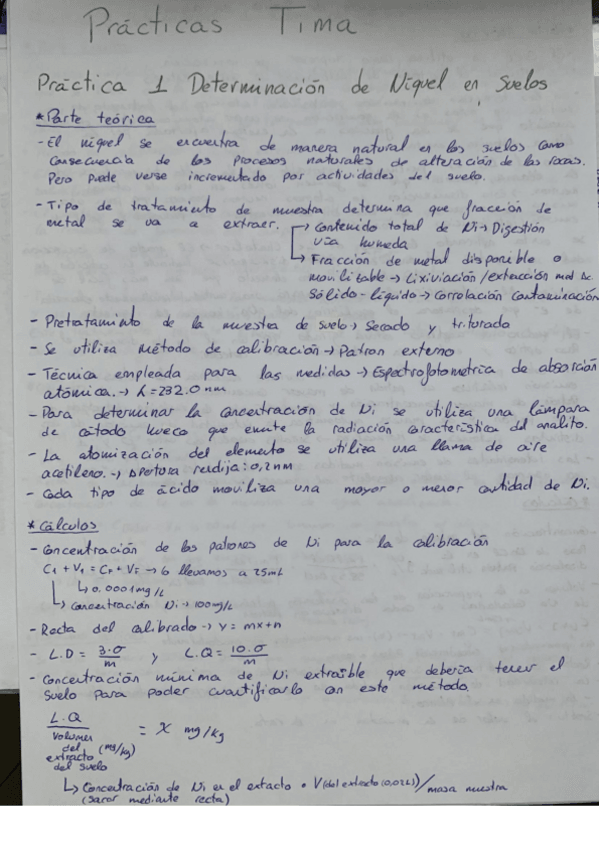 Prácticas Tima
Práctica 1 Determinación de Níquel en Suelos
*Parte teórica
- El níquel se encuentra de manera natural en los suelos como
consecuencia de los procesos naturales de alteración de las rocas.
Pero puede verse incrementado por actividades del suelo.
- Tipo de tratamiento de muestra determina que fracción de
metal se va a extraer. → Contenido total de Ni → Digestión
vía húmeda
→ Fracción de metal disponible o
movilizable → Lixiviación/extracción med Ac.
Sólido-líquido → Correlación contaminación
- Pretratamiento de la muestra de suelo → Secado y triturado
- Se utiliza método de calibración → Patron externo
- Técnica empleada para las medidas → Espectrofotometría de absorción
atómica. → λ=232.0 nm
- Para determinar la concentración de Ni se utiliza una lámpara
de cátodo hueco que emite la radiación característica del analito.
- La atomización del elemento se utiliza una llama de aire
acetileno. → Apertura rendija: 0,2 nm
- Cada tipo de ácido moviliza una mayor o menor cantidad de Ni.
* Cálculos
- Concentración de los patrones de Ni para la calibración
→ lo llevamos a 25mL
mg/L
→ Concentración Ni → 100mg/L
- Recta del calibrado → y = mx+n
- L.D = 3·σ/m y L.Q = 10·σ/m
- Concentración mínima de Ni extraible que debería tener el
suelo para poder cuantificarlo con este método.
L.Q / Volumen del extracto del suelo (mg/kg) = X mg/kg
→ Concentración de Ni en el extacto · V(del extracto)/masa muestra
(sacar mediante recta)